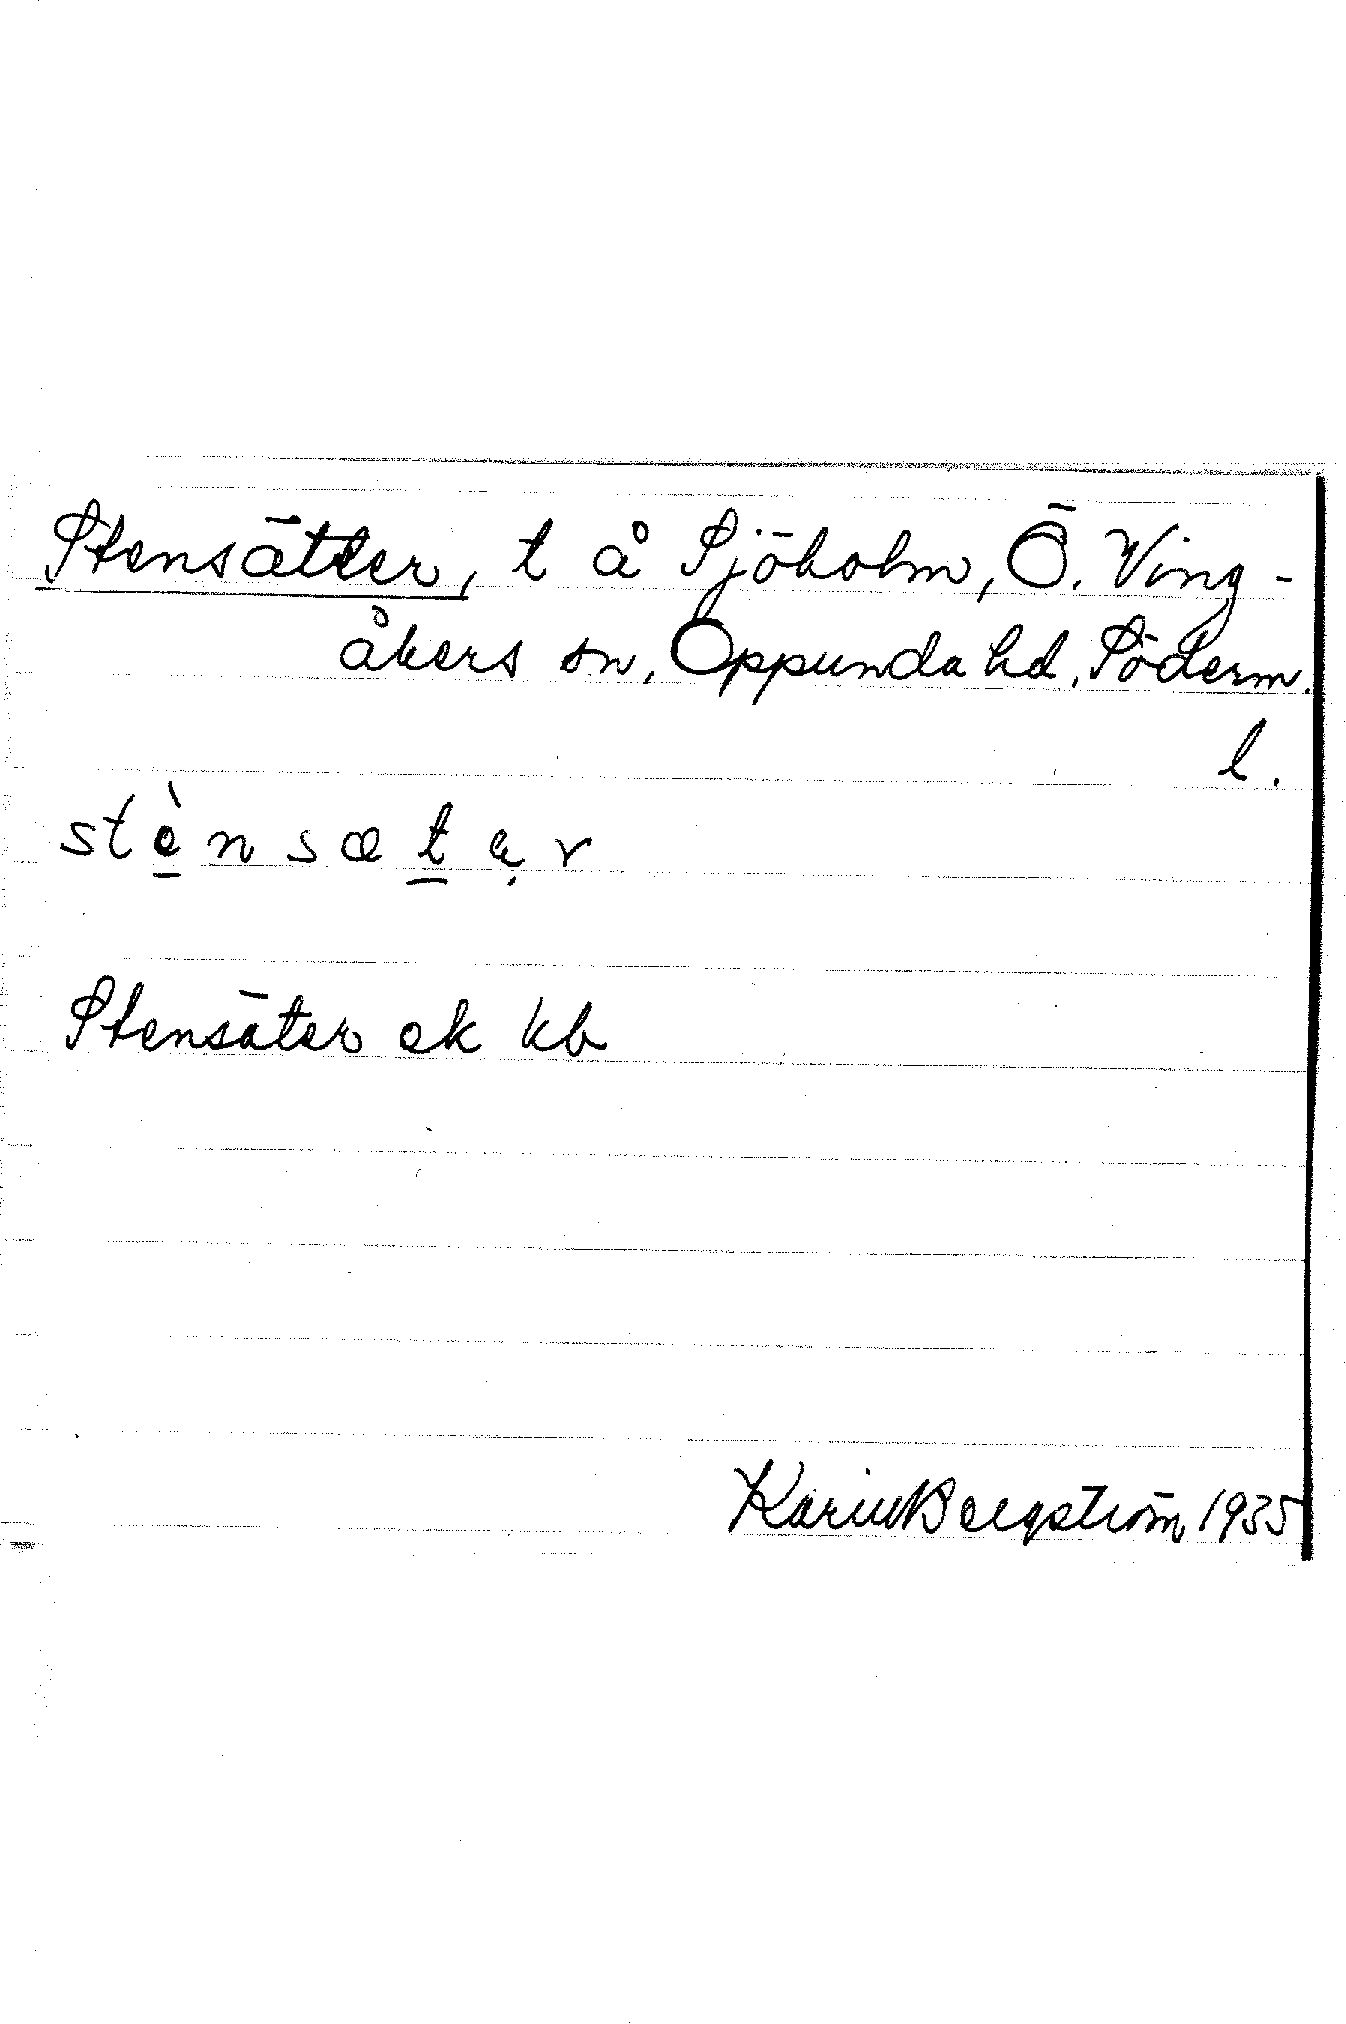 Stensätter, t å Sjöholm, Ö. Ving-
åkers sn, Oppunda hd, Söderm.
l.
stè̲nsæt̲ạr
Stensäter ek kb
Karin Bergström 1935